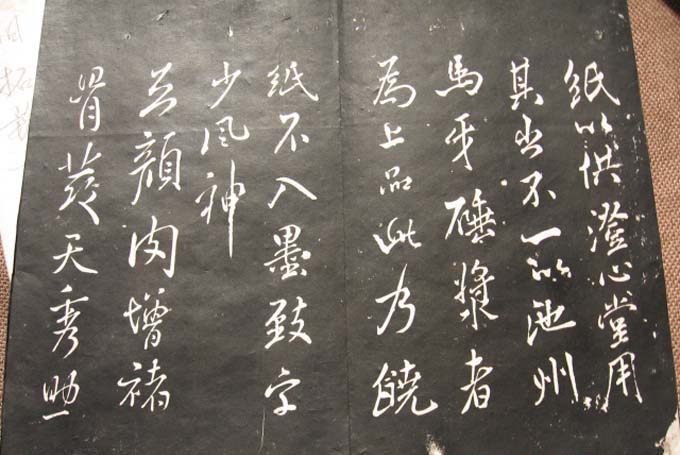 紙以供澄心堂用
其出不一以池州
馬牙硾漿者
為上品此乃饒
紙不入墨致字
少風神
去顏肉增褚
骨茲天秀助